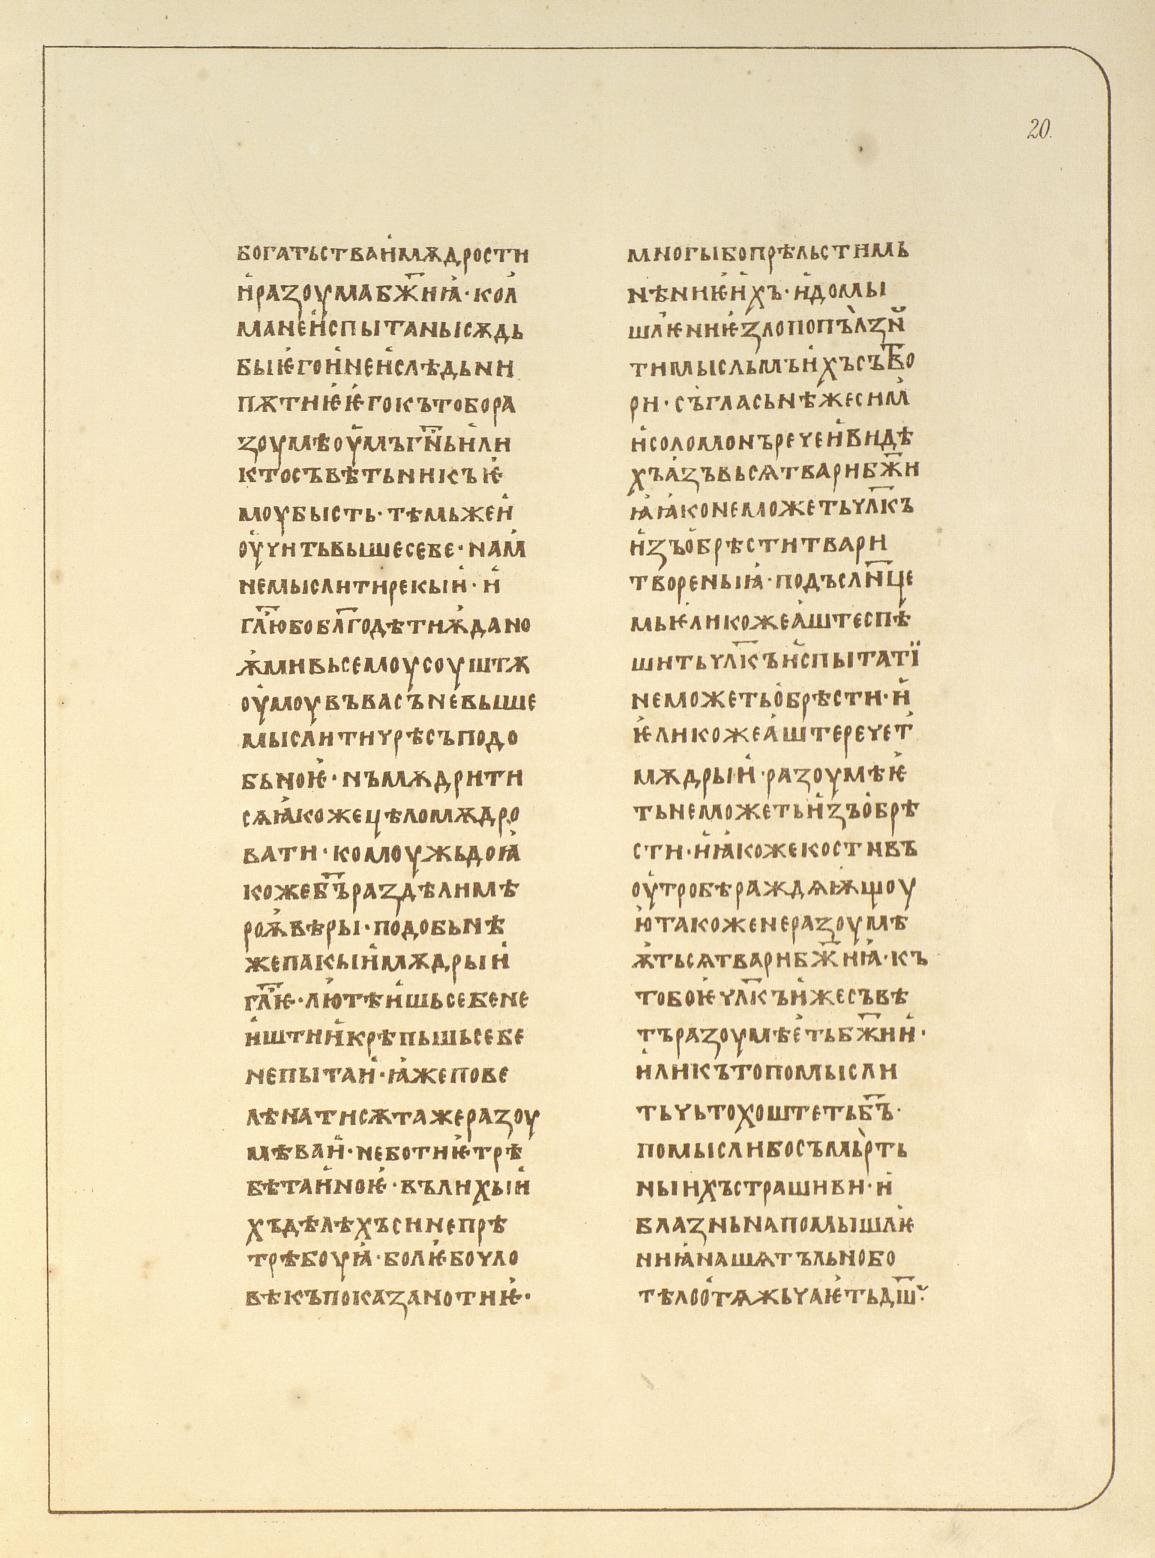 20.
богатьстваимѫдрости
иразоумабж҃иꙗ·кол
манеиспытаньісѫдь
быѥгоинеислѣдьни
пѫтиѥѥгокътобора
зоумѣоумъгн҃ьили
ктосъвѣтьникъѥ
моубысть·тѣмьжеи
оучитьвышесебе·нам
немыслитирекыи·и
гл҃юбобл҃годѣтиѫдано
ѫмивьсемоусоуштѫ
оумоувъвасъневыше
мыслитичрѣсъподо
бьноѥ·нъмѫдрити
сѧꙗкожецѣломѫдро
вати·комоужьдоꙗ
кожебъ҃раздѣлимѣ
роѫвѣры·подобьнѣ
жепакыимѫдрыи
гл҃ѥ·лютѣишьсебене
иштиикрѣпышьсебе
непытаи·ꙗжепове
лѣнатисѫтажеразоу
мѣваи·неботиѥтрѣ
бѣтаиноѥ·вълихыи
хъдѣлѣхъсинепрѣ
трѣбоуꙗ·болѥбоуло
вѣкъпоказанотиѥ·
многыбопрѣльстимь
нѣниѥихъ·идомы
шлѥниѥзлопопълзн
тимысльмъихъсътво
ри·съгласьнѣжесим
исоломонъречеивидѣ
хъазъвьсѧтварибж҃и
ꙗꙗконеможетьчл҃къ
изъобрѣститвари
твореныꙗ·подъслн҃це
мьѥликожеаштеспѣ
шитьчл҃къиспытатї
неможетьобрѣсти·и
ѥликожеаштеречет
мѫдрыи·разоумѣѥ
тьнеможетьизъобрѣ
сти·иꙗкожекоствъ
оутробѣраждѧѭщоу
ютакоженеразоумѣ
ѫтьсѧтварибж҃иꙗ·къ
тобоѥчл҃къижесъвѣ
търазоумѣетьбж҃ии·
иликътопомысли
тьчьтохоштетьбъ҃·
помыслибосъмьрть
ныихъстрашиви·и
блазньнапомышлѥ
ниꙗнашѧтъльнобо
тѣлоотѧжьчаѥтьдш҃·